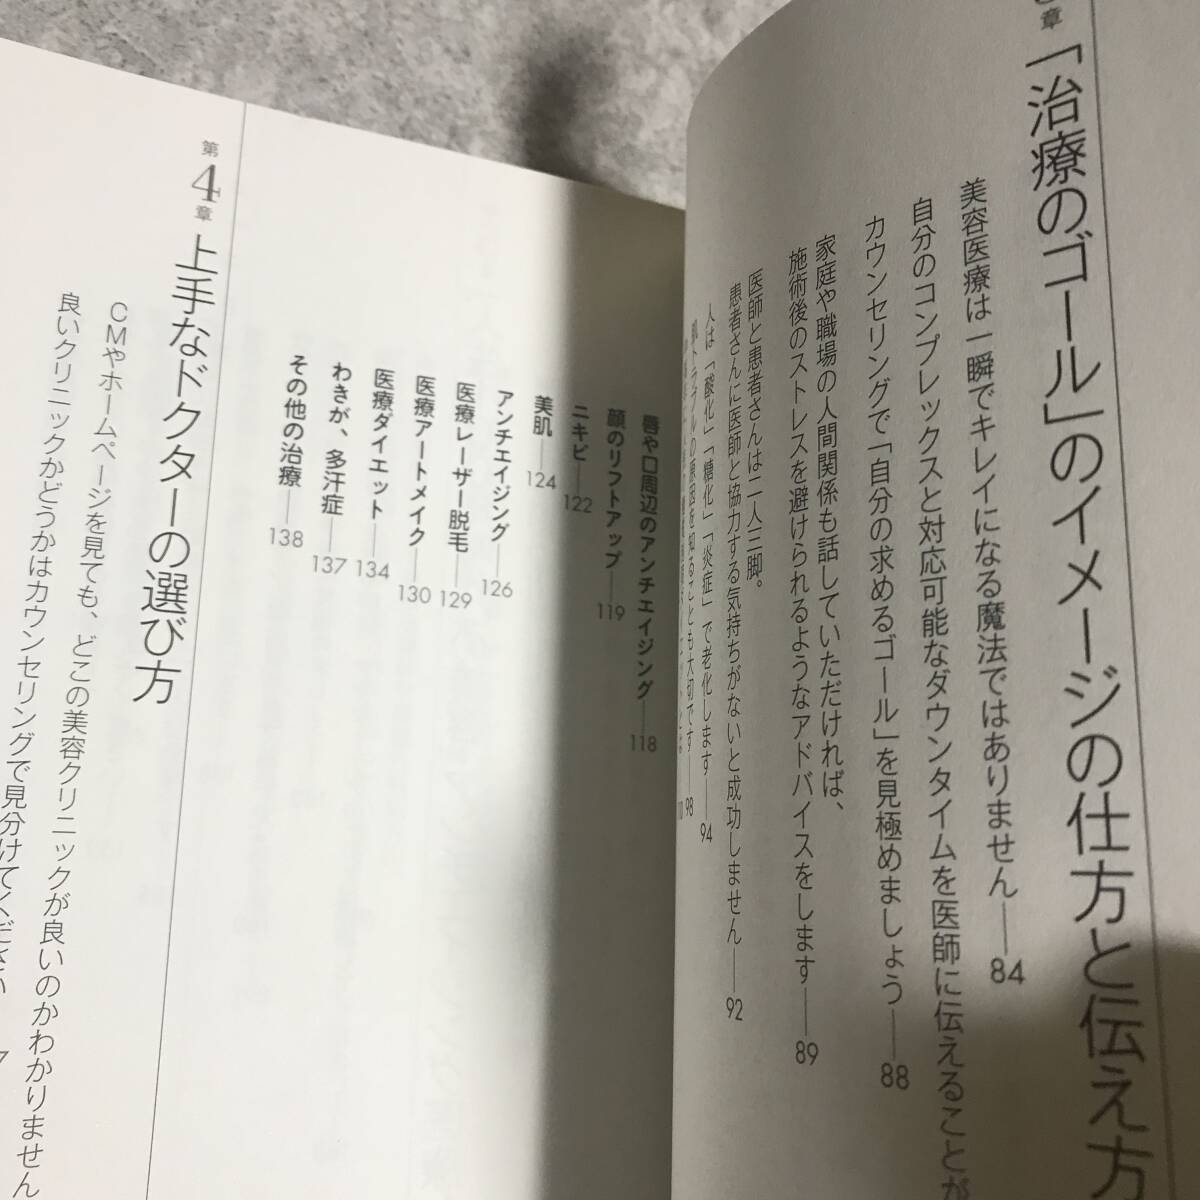 章「治療のゴール」のイメージの仕方と伝え方
美容医療は一瞬でキレイになる魔法ではありません――84
自分のコンプレックスと対応可能なダウンタイムを医師に伝えることが
カウンセリングで「自分の求めるゴール」を見極めましょう――88
家庭や職場の人間関係も話していただければ、
施術後のストレスを避けられるようなアドバイスをします――89
医師と患者さんは二人三脚。
患者さんに医師と協力する気持ちがないと成功しません――92
人は「酸化」「糖化」「炎症」で老化します――94
肌トラブルの原因を知ることも大切です――98
唇や口周辺のアンチエイジング――118
顔のリフトアップ――119
ニキビ――122
美肌――124
アンチエイジング――126
医療レーザー脱毛――129
医療アートメイク――130
医療ダイエット――134
わきが、多汗症――137
その他の治療――138
第4章 上手なドクターの選び方
CMやホームページを見ても、どこの美容クリニックが良いのかわかりません
良いクリニックかどうかはカウンセリングで見分けてください